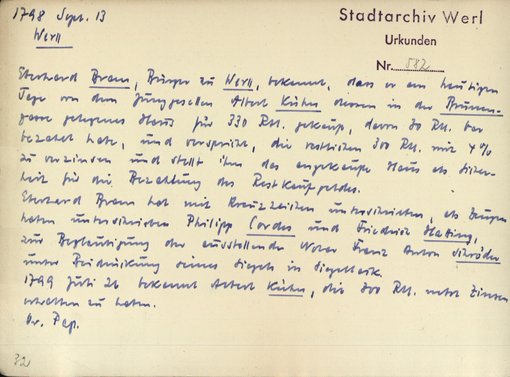 1798 Sept. 13
Stadtarchiv Werl
Werl
Urkunden
Nr. 582
Eberhard Bram, Bürger zu Werl, bekennt, dass er am heutigen
Tage von dem Junggesellen Albert Kühn dessen in der Brunnen-
gasse gelegenes Haus für 330 Rt. gekauft, davon 30 Rt. bar
bezahlt habe, und verspricht, die restlichen 300 Rt. mit 4 %
zu verzinsen und stellt ihm das angekaufte Haus als Sicher-
heit für die Bezahlung des Restkaufgeldes.
Eberhard Bram hat mit Kreuzzeichen unterschrieben, als Zeugen
haben unterschrieben Philipp Cordes und Friedrich Hatting,
zur Beglaubigung der ausstellende Notar Franz Anton Schröder
unter Beidrückung seines Siegels in Siegellack.
1799 Juli 26 bekennt Albert Kühn, die 300 Rt. nebst Zinsen
erhalten zu haben.
Or. Pap.
32